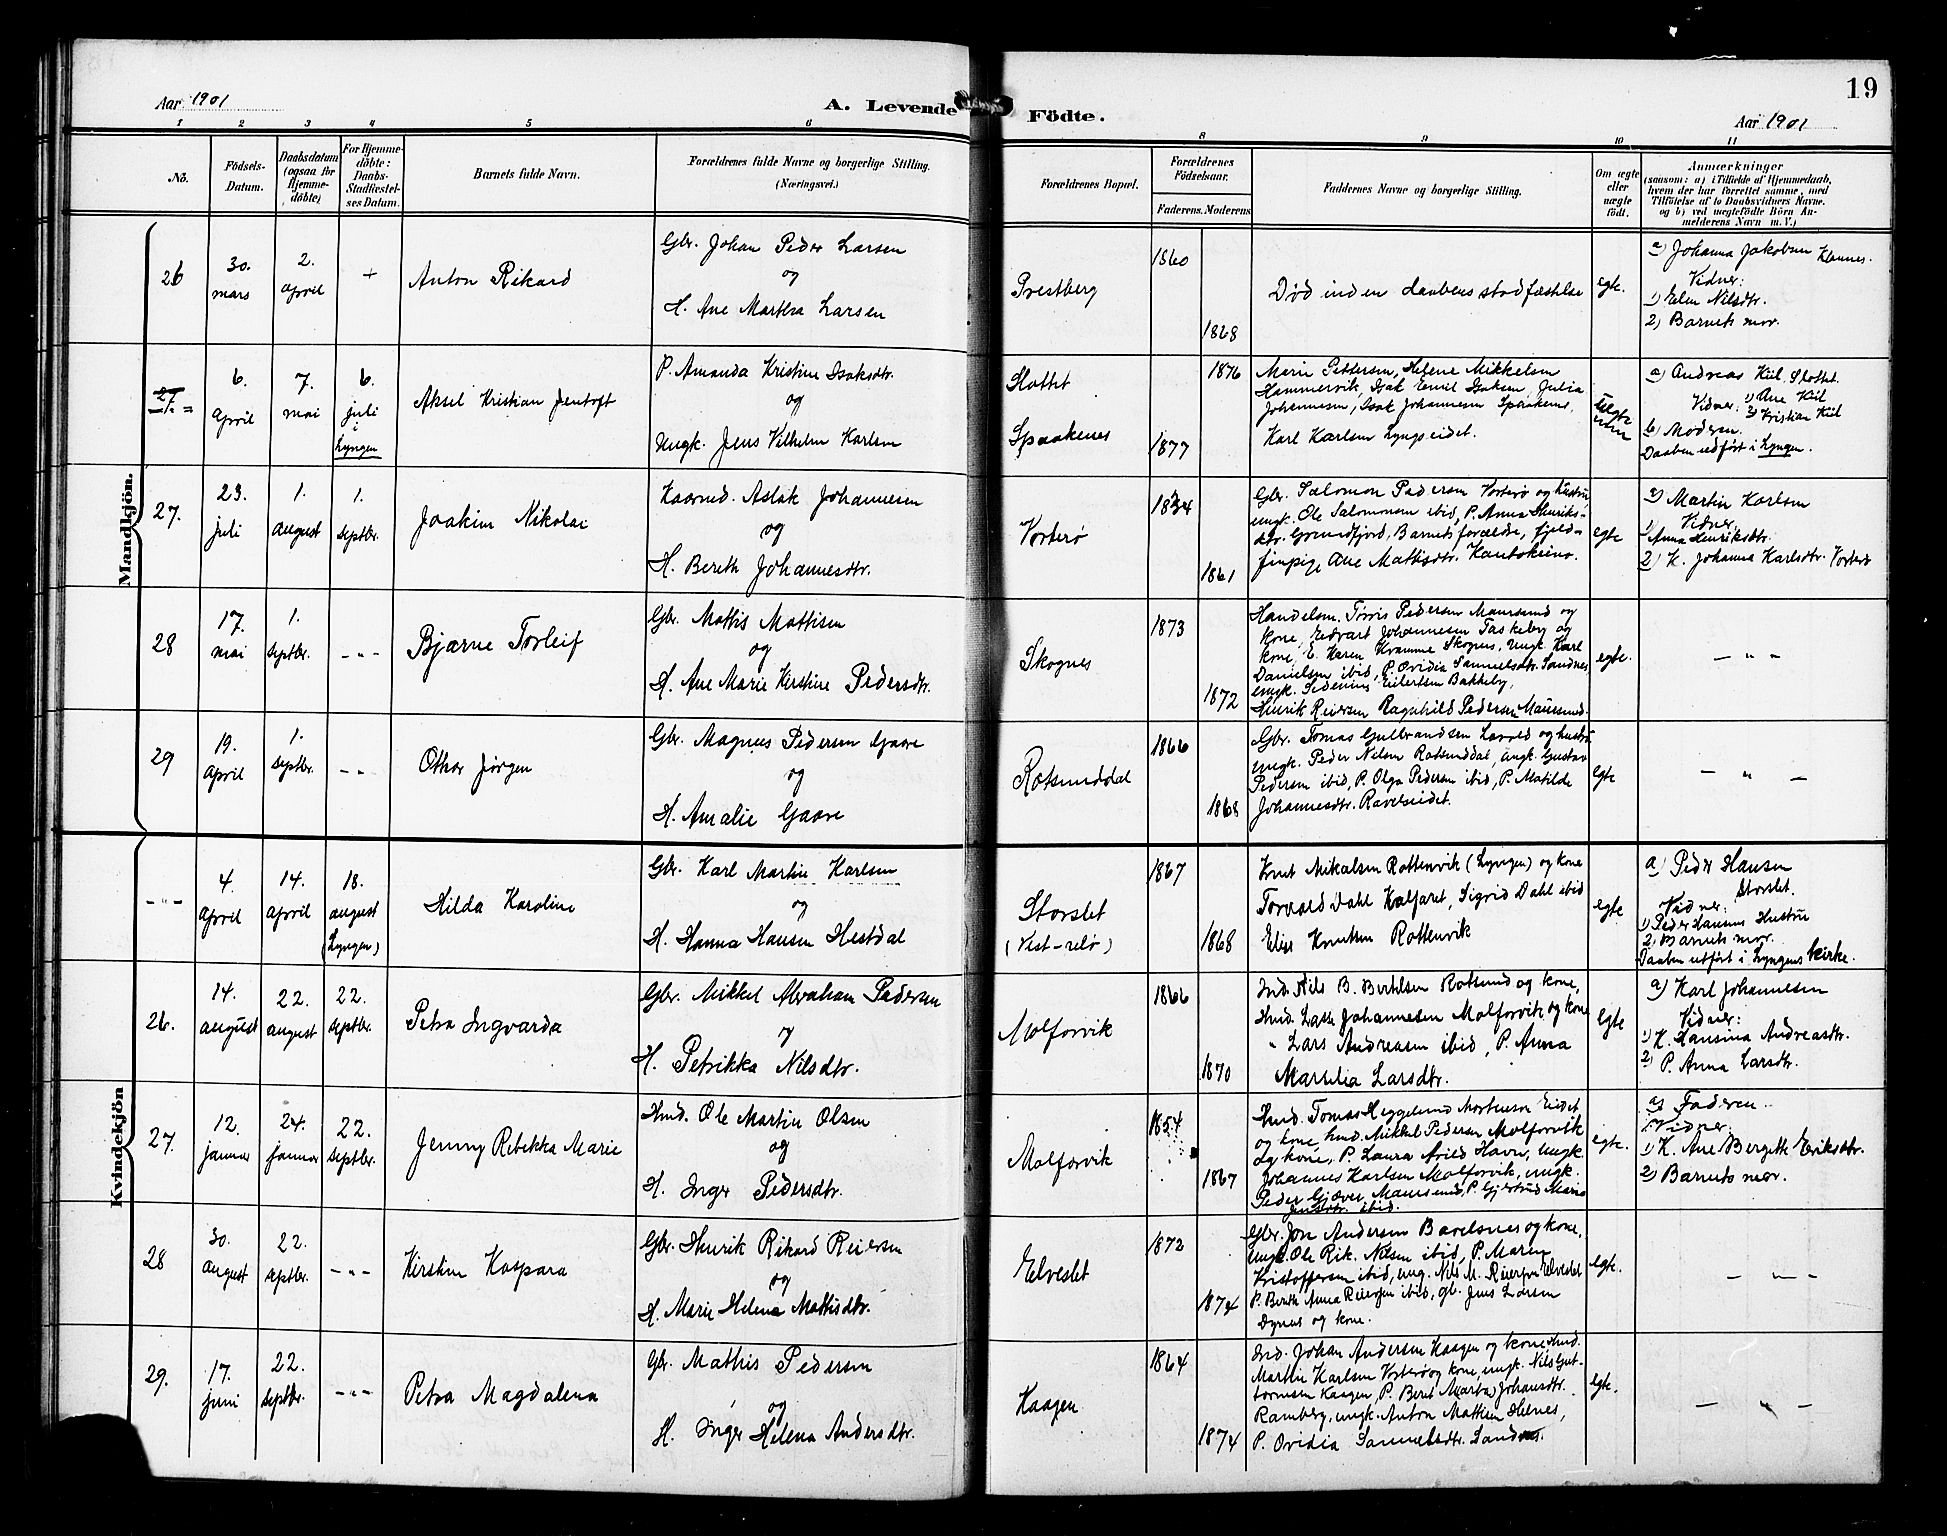 Aar 1901
A. Levende Födte.
Aar 1901
19
1 2 3 4 5 6 8 9 10 11
No.
Födsels-
Datum.
Daabsdatum
(ogsaa for
Hjemme-
döbte)
For Hjemme-
döbte:
Daabs-
Stadfæstel-
ses Datum.
Barnets fulde Navn.
Forældrenes fulde Navne og borgerlige Stilling.
(Næringsvei.)
Forældrenes Bopæl.
Forældrenes
Födselsaar.
Faderens. Moderens
Faddernes Navne og borgerlige Stilling.
Om ægte
eller
uægte
födt.
Anmærkninger
(saasom: a) i Tilfælde af Hjemmedaab,
hvem der har forrettet samme, med
Tilföielse af to Daabsvidners Navne.
og b) ved uægtefödte Börn An-
melderens Navn m. V.)
Mandkjön.
26
30.
mars
2.
april
+
Anton Rikard
Gbr. Johan Peder Larsen
og
H. Ane Martha Larsen
Prestberg
1860
1868
Død inden daabens stadfæstelse
egte.
a) Johanna Jakobsen
Vidner:
1) Elen Nilsdtr.
2) Barnets mor.
27.
6.
april
7.
mai
6.
juli
i
Lyngen
Aksel Kristian Jentoft
P. Amanda Kristine Isaksdtr.
og
Ungk. Jens Vilhelm Karlsen
Slottet
Spaakenes
1876
1877
Marie Pettersen, Helene Mikkelsen
Hammervik, Isak Emil Isaksen, Julia
Johannesen, Isak Johannesen Spaakenes,
Karl Karlsen Lyngseidet.
a) Andreas Kiil Slottet.
Vidner: 1) Ane Kiil
2) Kristian Kiil
b) Moderen.
Daaben udført i Lyngen.
27.
23.
juli
1.
august
1.
septbr.
Joakim Nikolai
Kaarmd. Aslak Johannesen
og
H. Bereth Johannesdtr.
Vorterø
1834
1861
Gbr. Salomon Pedersen Vorterø og hustru
ungk. Ole Salomonsen ibid, P. Anna Henriks-
dtr. Grundfjord, Barnets forældre, fjeld-
finpige Ane Mattisdtr. Kautokeino.
egte
a) Martin Karlsen
Vidner.
1) Anna Henriksdtr.
2) K. Johanna Karlsdtr. Vorterø
28
17.
mai
1.
septbr.
- " -
Bjarne Torleif
Gbr. Mattis Mattisen
og
H. Ane Marie Kerstine Pedersdtr.
Skognes
1873
1872
Handelsm. Tørris Pedersen Maursund og
kone, Edvart Johannesen Taskeby og
kone, E. Karen Kramme Skognes, Ungk. Karl
Danielsen ibid, P. Ovidia Samuelsdtr. Sandnes,
ungk. Pedenius Eilertsen Bakkeby,
Henrik Reiersen Ragnhild Pedersen Maursund.
egte.
- " -
29
19.
april
1.
septbr.
- " -
Othar Jørgen
Gbr. Magnus Pedersen Gaare
og
H. Amalie Gaare
Rotsunddal
1866
1868
Gbr. Tomas Gulbrandsen og hustru
ungk. Peder Nilsen Rotsunddal, ungk. Gustav
Pedersen ibid, P. Olga Pedersen ibid, P. Matilde
Johannesdtr. Ravelseidet.
egte
- " -
Kvindekjön
- " -
4.
april
14.
april
18.
august
(Lyngen)
Hilda Karoline
Gbr. Karl Martin Karlsen
og
H. Hanna Hansen Hestdal
Storslet
(Vest-relø)
1867
1868
Knut Mikalsen Rottenvik (Lyngen) og kone
Torvald Dahl Kalfaret, Sigrid Dahl ibid
Elise Knutsen Rottenvik
egte
a) Peder Hansen
Storslet.
Vidner:
1) Peder Hansens Hustru
2) Barnets mor.
Daaben utført i Lyngens kirke.
26.
14.
august
22.
august
22.
septbr.
Petra Ingvarda
Gbr. Mikkel Abraham Pedersen
og
H. Petrikka Nilsdtr.
Molforvik
1866
1870
Ind. Nils B. Bertelsen Rotsund og kone,
Hmd. Lasse Johannesen Molforvik og kone
" Lars Andreasen ibid, P. Anna
Marselia Larsdtr.
egte
a) Karl Johannesen
Vidner:
1) K. Hansina Andreasdtr.
2) P. Anna Larsdtr.
27.
12.
januar
24.
januar
22.
septbr.
Jenny Rebekka Marie
Hmd. Ole Martin Olsen
og
H. Inger Pedersdtr.
Molforvik
1854
1867
Hmd. Tomas Heggelund Mortensen Eidet
og kone, hmd. Mikkel Pedersen Molforvik
og kone, P. Laura Arild Havn, ungk.
Johannes Karlsen Molforvik, ungk.
Peder Gjæver Maursund, P. Gjertrud Maria
Jensdtr. ibid.
egte.
a) Faderen.
Vidner.
1) K. Ane Bergette Eriksdtr.
2) Barnets mor.
28
30.
august
22.
septbr.
- " -
Kirstine Kaspara
Gbr. Henrik Rikard Reiersen
og
H. Marie Helena Mattisdtr.
Elveslet
1872
1874
Gbr. Jon Andersen Bavelsnes og kone,
Ungk. Ole Rik. Nilsen ibid, P. Maren
Kristoffersen ibid, ung. Nils M. Reiersen Elveslet
P. Berith Anna Reiersen ibid, gb. Jens Larsen
Dynes og kone.
egte.
- " -
29.
17.
juni
22.
septbr.
- " -
Petra Magdalena
Gbr. Mathis Pedersen
og
H. Inger Helena Andersdtr.
Kaagen
1864
1874
Ind. Johan Andersen Kaagen og kone, Hmd.
Martin Karlsen Vorterø og kone, ungk. Nils Gut-
tormsen Kaagen, P. Beret Marta Johansdtr.
Ramberg, ungk. Anton Mattisen Helnes,
P. Ovidia Samuelsdtr. Sandnes.
egte.
- " -